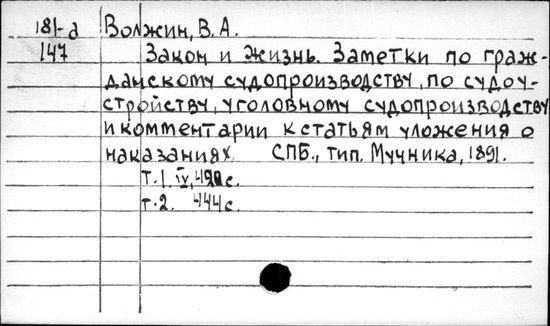 181-д Волжин, В. А.
147 Закон и жизнь. Заметки по граж-
данскому судопроизводству, по судоу-
стройству, уголовному судопроизводству
и комментарии к статьям уложения о
наказаниях. СПБ., тип. Мучника, 1891.
т. 1. IV, с.
т. 2. 444 с.